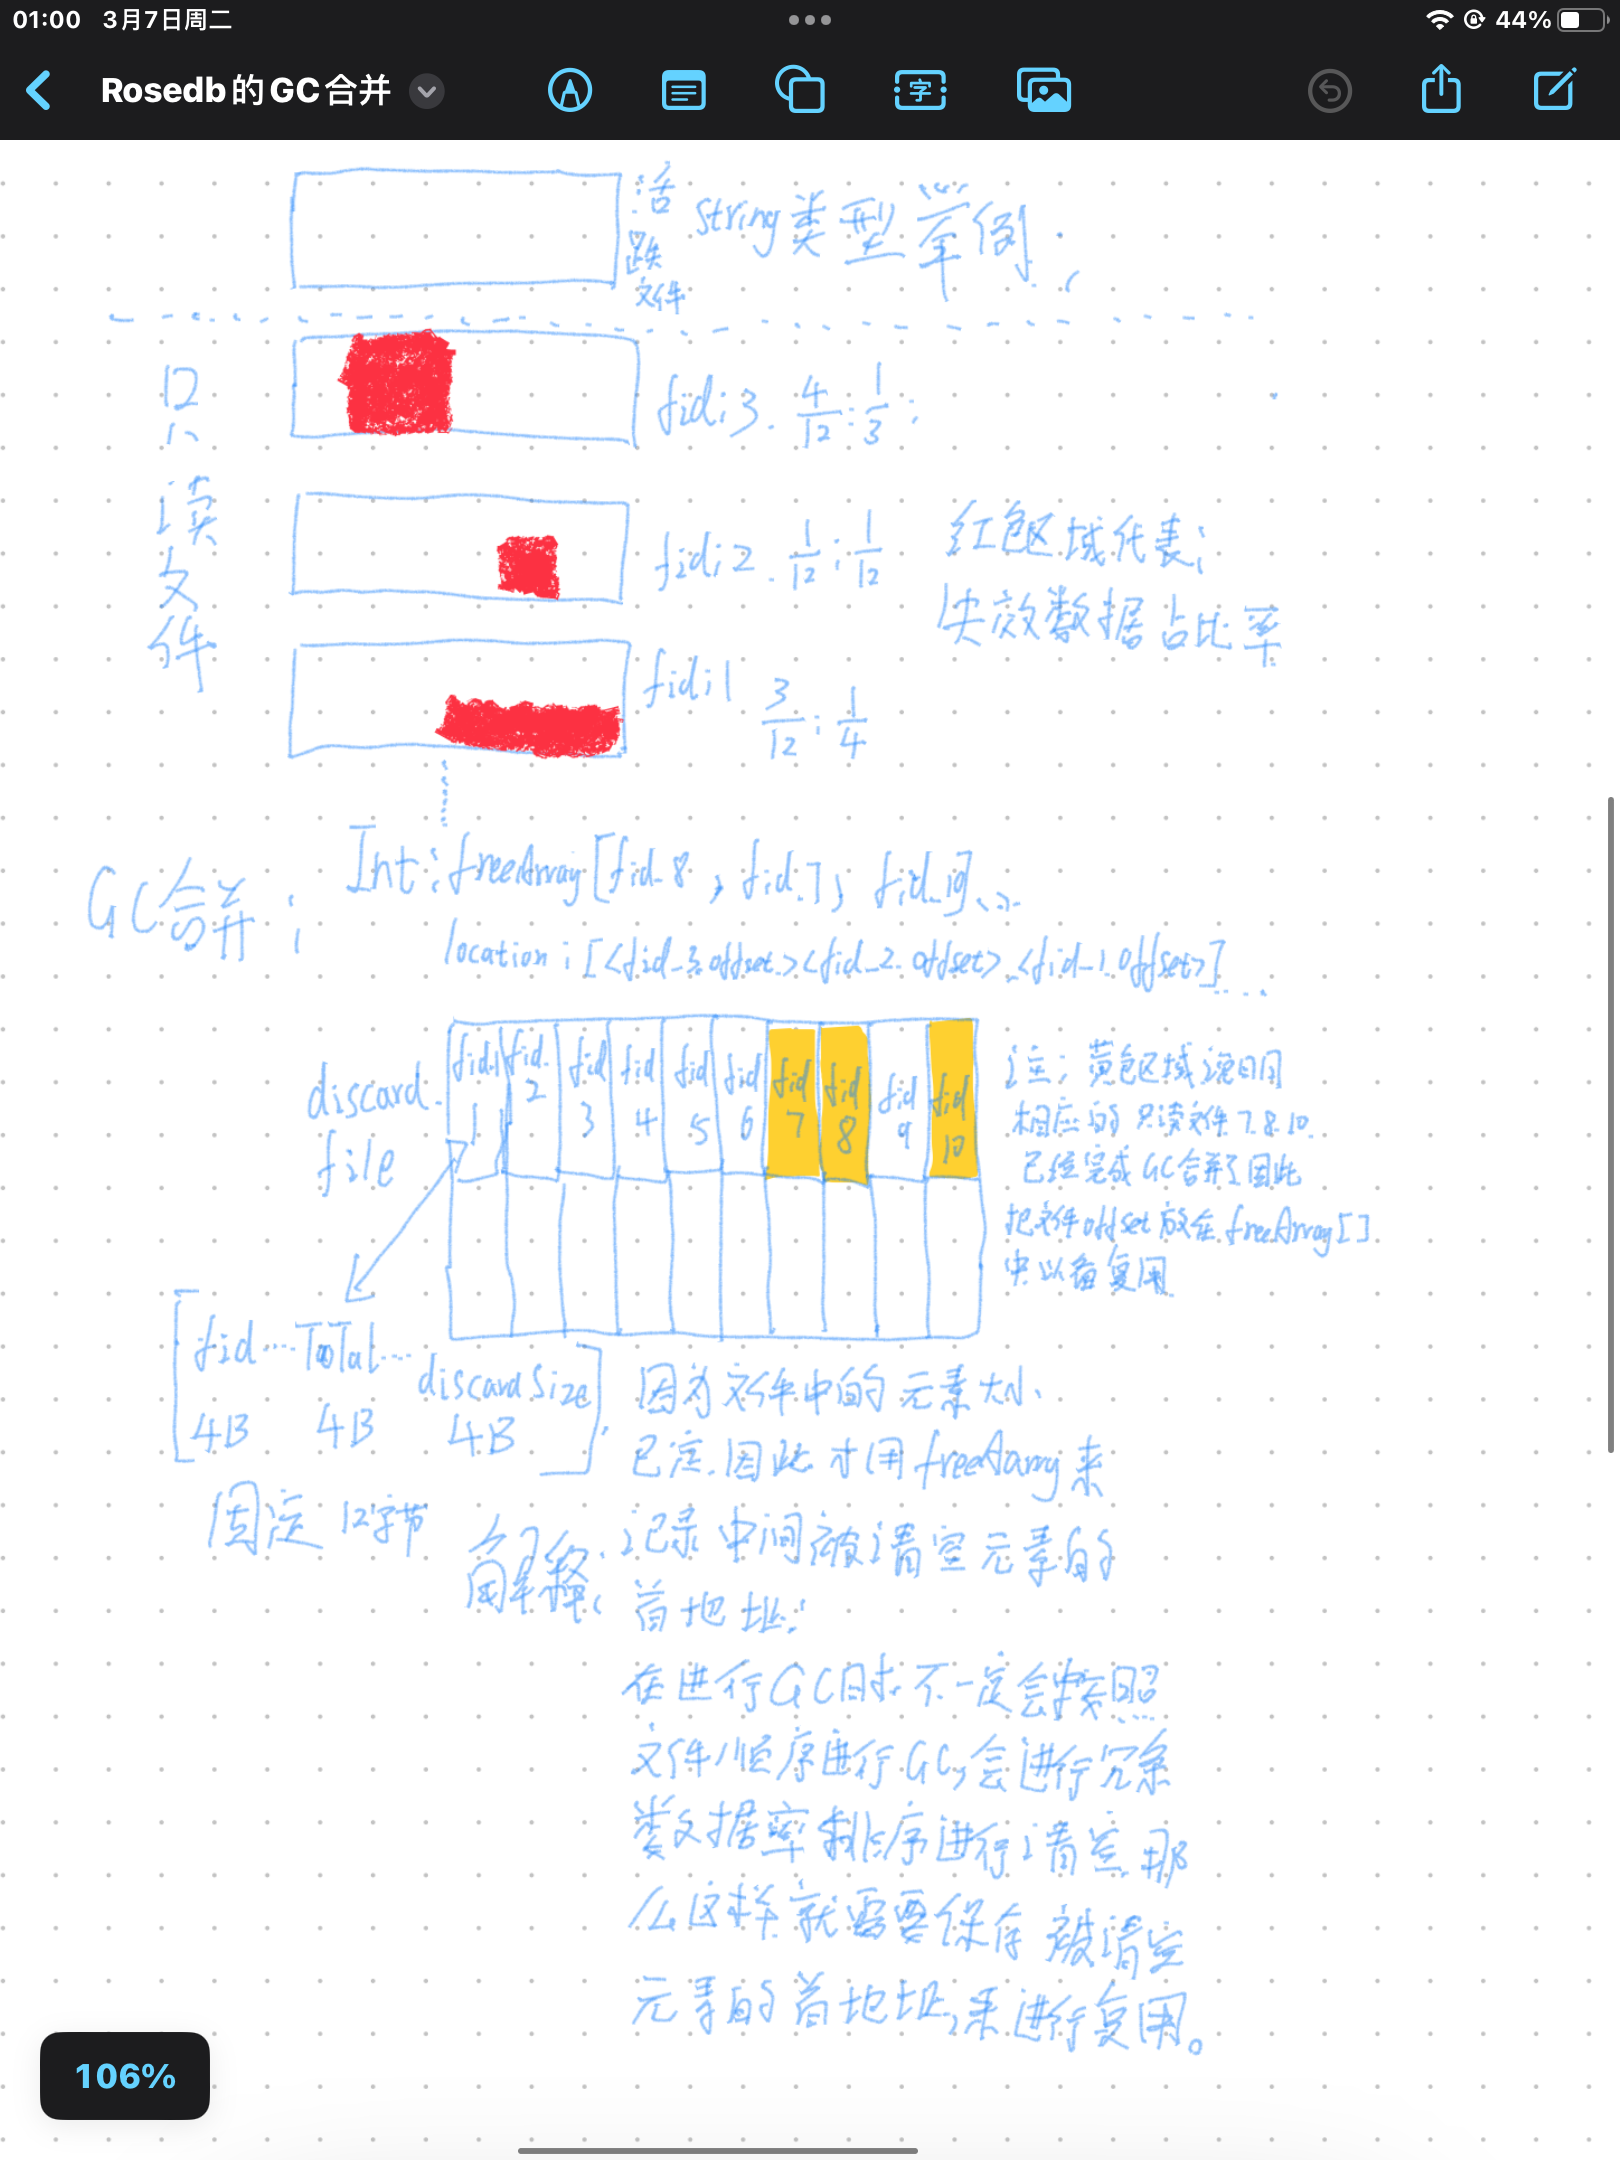 01:00 3月7日周二
44%
Rosedb的GC合并
活跃文件
String类型举例:
只读文件
fid:3. 4/12 : 1/3 ;
fid:2. 1/12 : 1/12
红色区域代表;
失效数据占比率
fid:1 3/12 : 1/4
GC合并:
Int:freeArray[fid_8, fid_7, fid_10]...
location:[<fid_3.offset><fid_2.offset>.<fid_1.offset>]....
discard.
file
fid.1 fid.2 fid3 fid4 fid5 fid6 fid7 fid8 fid9 fid10
注:黄色区域说明
相应的只读文件7.8.10.
已经完成GC合并了因此
把文件offset放在freeArray[]
中以备复用
[fid...ToTal...discardSize].
4B 4B 4B
固定12字节
解释:
因为文件中的元素大小
已定.因此才用freeAarry来
记录中间被清空元素的
首地址:
在进行GC时.不一定会按照
文件顺序进行GC,会进行冗余
数据率排序进行清空.那
么这样就需要保存被清空
元素的首地址,来进行复用。
106%